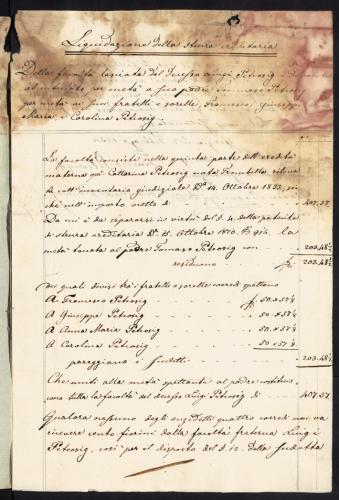 Liquidazione della steura ereditaria
Della facoltà lasciata dal Luigi Petrosig
al per metà a suo padre Tommaso Petrosig
per metà ai suoi fratelli e sorelle Francesco, Giuseppe
Maria, e Carolina Petrosig.
La facoltà consiste nella quinta parte dell'eredità
materna qd. Catterina Petrosig nata
dall'inventario giudiziale Dto. 14. Ottobre 1833,
che nell'importo netto di 407.37.
Da cui è da separarsi in virtù del §. 4. della patente
di steura ereditaria Dto. 15. Ottobre 1810. la
metà toccata al padre Tomaso Petrosig con 203.48½
residuano f. 203.48½
Dei quali divisi trà i fratelli e sorelle coeredi spettano
A Francesco Petrosig f. 50 x 57⅛
A Giuseppe Petrosig 50 x 57⅛
A Anna Maria Petrosig 50 x 57⅛
A Carolina Petrosig 50 x 57⅛
pareggiano i sudetti 203.48½
Che uniti alla metà spettante al padre costituis-
cono tutta la facoltà del Luigi Petrosig di 407.37.
Qualora nessuno degli anzidetti quattro coeredi non va
ricevere cento fiorini dalla facoltà fraterna Luigi
Petrosig, così per il disposto del §. 12. della sudetta